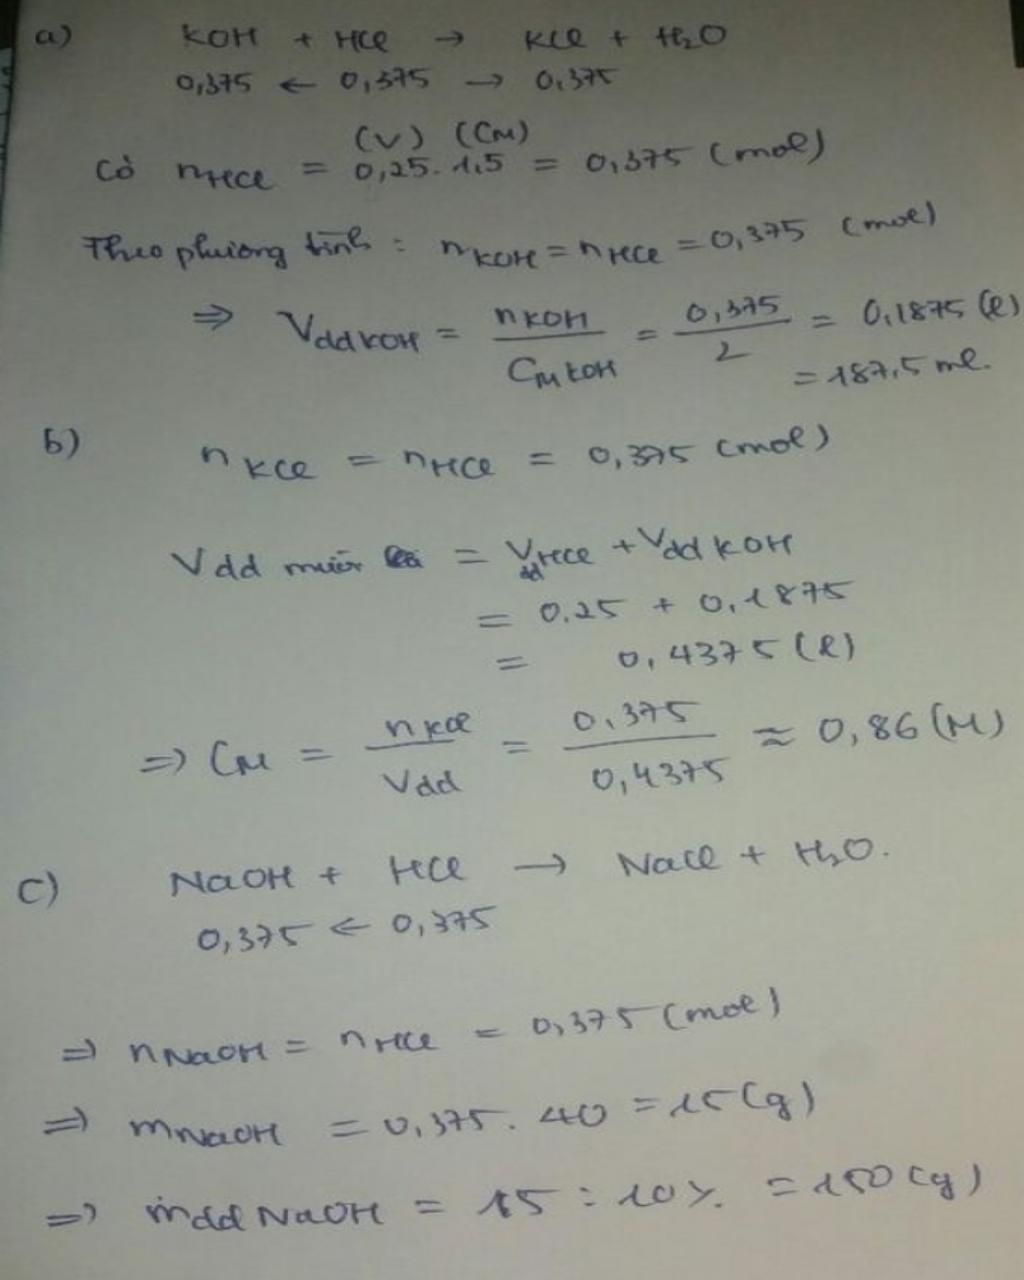 a) KOH + HCl → KCl + H₂O
0,375 ← 0,375 → 0,375
(V) (CM)
Có nHCl = 0,25 . 1,5 = 0,375 (mol)
Theo phương tình : nKOH = nHCl = 0,375 (mol)
⇒ VddKOH = nKOH / CM KOH = 0,375 / 2 = 0,1875 (l)
= 187,5 ml.
b) nKCl = nHCl = 0,375 (mol)
Vdd muối = VddHCl + Vdd KOH
= 0.25 + 0,1875
= 0,4375 (l)
⇒ CM = nKCl / Vdd = 0,375 / 0,4375 ≈ 0,86 (M)
c) NaOH + HCl → NaCl + H₂O.
0,375 ← 0,375
⇒ nNaOH = nHCl = 0,375 (mol)
⇒ mNaOH = 0,375 . 40 = 15 (g)
⇒ mdd NaOH = 15 : 10% = 150 (g)